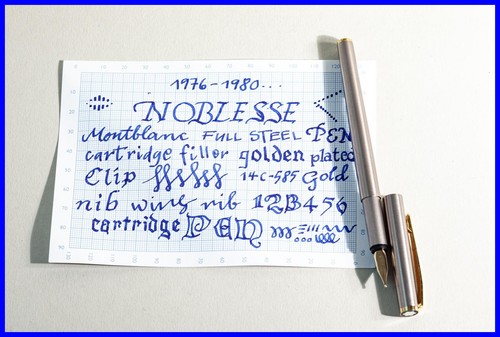 1976-1980...
NOBLESSE
Montblanc FULL STEEL PEN
cartridge filler golden plated
Clip 14c-585 Gold
nib wing nib 123456
cartridge PEN